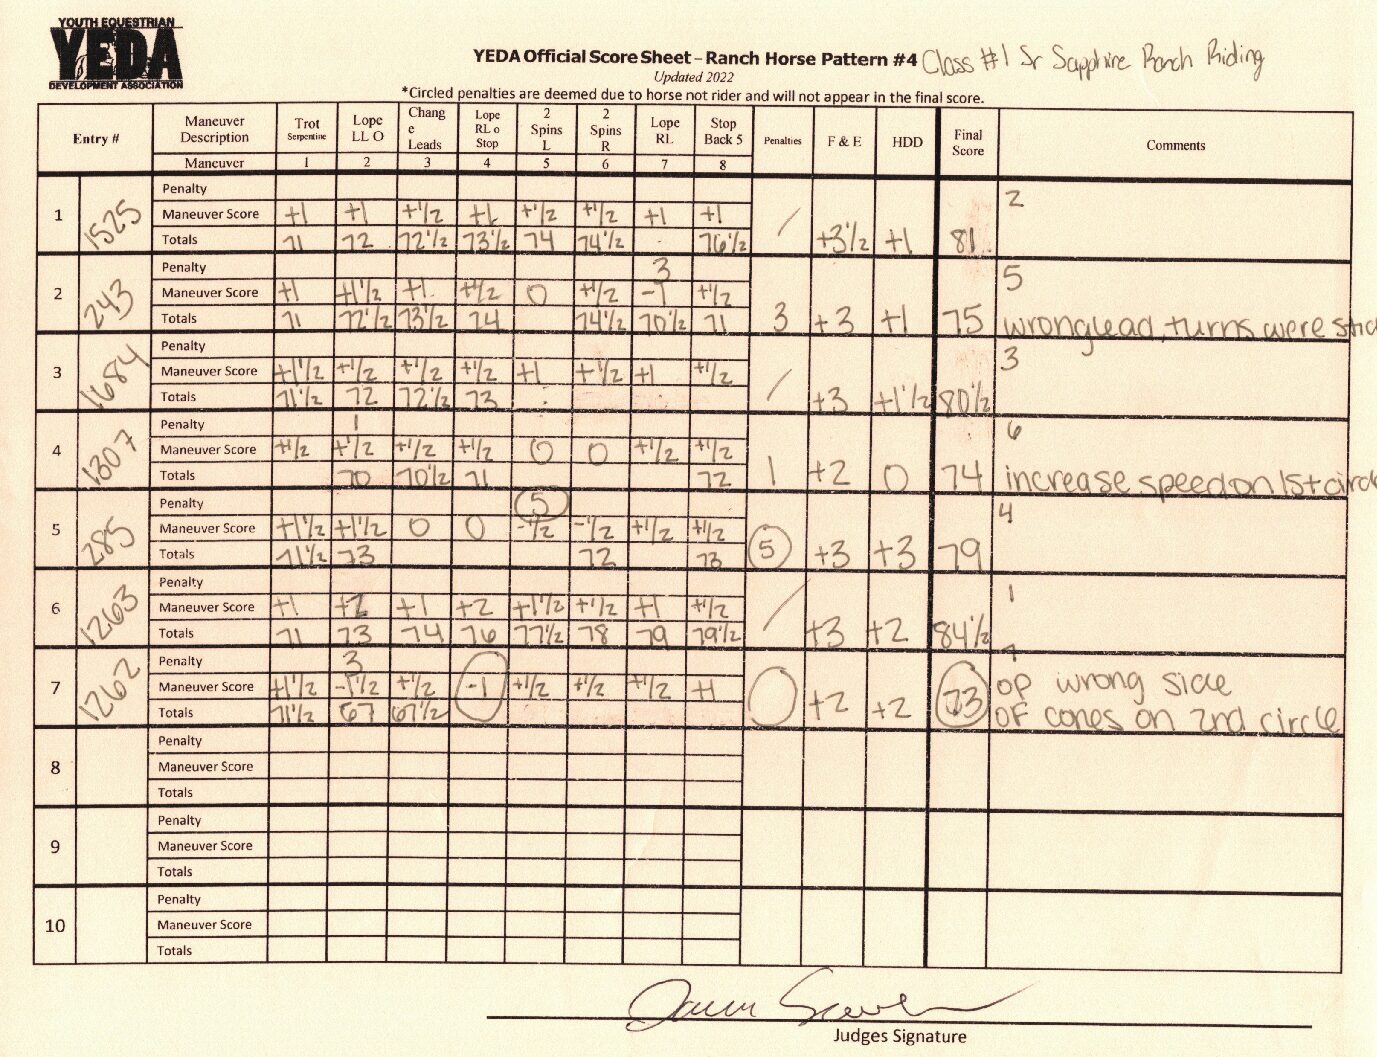 YOUTH EQUESTRIAN
YEDA
DEVELOPMENT ASSOCIATION
YEDA Official Score Sheet – Ranch Horse Pattern #4 Class #1 Sr Sapphire Ranch Riding
Updated 2022
*Circled penalties are deemed due to horse not rider and will not appear in the final score.
Entry # Maneuver Description Trot Serpentine Lope LL O Change Leads Lope RL o Stop 2 Spins L 2 Spins R Lope RL Stop Back 5 Penalties F & E HDD Final Score Comments
Maneuver 1 2 3 4 5 6 7 8
1 1525 Penalty 2
Maneuver Score +1 +1 +1/2 +1 +1/2 +1/2 +1 +1
Totals 71 72 72 1/2 73 1/2 74 74 1/2 76 1/2 / +3 1/2 +1 81
2 243 Penalty 3 5
Maneuver Score +1 +1 1/2 +1 +1/2 0 +1/2 -1 +1/2
Totals 71 72 1/2 73 1/2 74 74 1/2 70 1/2 71 3 +3 +1 75 wrong lead, turns were stic
3 1684 Penalty 3
Maneuver Score +1 1/2 +1/2 +1/2 +1/2 +1 +1/2 +1 +1/2
Totals 71 1/2 72 72 1/2 73 / +3 +1 1/2 80 1/2
4 1307 Penalty 1 6
Maneuver Score +1/2 +1/2 +1/2 +1/2 0 0 +1/2 +1/2
Totals 70 70 1/2 71 72 1 +2 0 74 increase speed on 1st circ
5 285 Penalty 5 4
Maneuver Score +1 1/2 +1 1/2 0 0 -1/2 -1/2 +1/2 +1/2
Totals 71 1/2 73 72 73 5 +3 +3 79
6 1263 Penalty 1
Maneuver Score +1 +2 +1 +2 +1 1/2 +1/2 +1 +1/2
Totals 71 73 74 76 77 1/2 78 79 79 1/2 / +3 +2 84 1/2
7 1262 Penalty 3 7
Maneuver Score +1 1/2 -1 1/2 +1/2 -1 +1/2 +1/2 +1/2 +1 op wrong side
Totals 71 1/2 67 67 1/2 +2 +2 73 of cones on 2nd circle
8 Penalty
Maneuver Score
Totals
9 Penalty
Maneuver Score
Totals
10 Penalty
Maneuver Score
Totals
Judges Signature